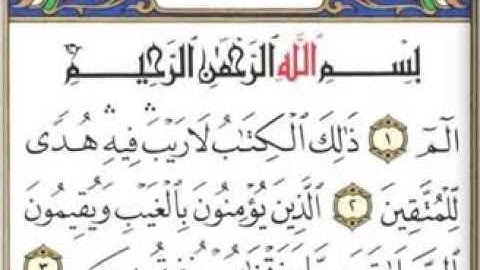 بِسْمِ اللَّهِ الرَّحْمَٰنِ الرَّحِيمِ
الٓمٓ ١ ذَٰلِكَ الْكِتَابُ لَا رَيْبَ ۛ فِيهِ ۛ هُدًى
لِلْمُتَّقِينَ ٢ الَّذِينَ يُؤْمِنُونَ بِالْغَيْبِ وَيُقِيمُونَ
٣